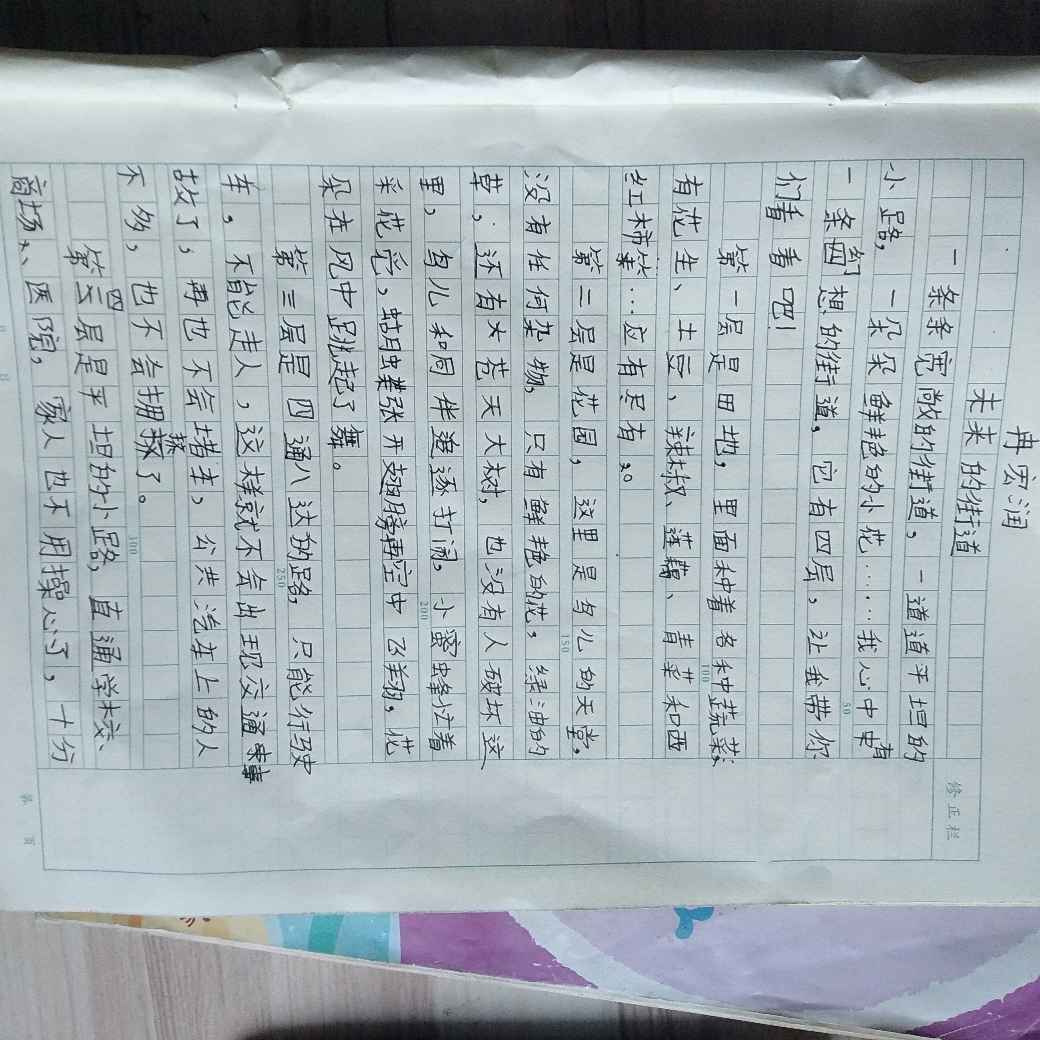 冉宏润
未来的街道
一条条宽敞的街道，一道道平坦的
小路，一朵朵鲜艳的小花……我心中有
一条幻想的街道，它有四层，让我带你
们看看吧！
第一层是田地，里面种着各种蔬菜，
有花生、土豆，辣椒、莲藕、青菜和西
红柿等…应有尽有。
第二层是花园，这里是鸟儿的天堂，
没有任何杂物，只有鲜艳的花，绿油的
草，还有大苍天大树，也没有人破坏这
里，鸟儿和同伴追逐打闹，小蜜蜂忙着
采花蜜，蝴蝶张开翅膀在空中飞翔，花
朵在风中跳起了舞。
第三层是四通八达的路，只能行驶
车，不能走人，这样就不会出现交通事
故了，再也不会堵车，公共汽车上的人
不多，也不会拥挤了。
第四层是平坦的小路，直通学校、
商场、医院，家人也不用操心了，十分
50
100
150
200
250
300
修正栏
第 页